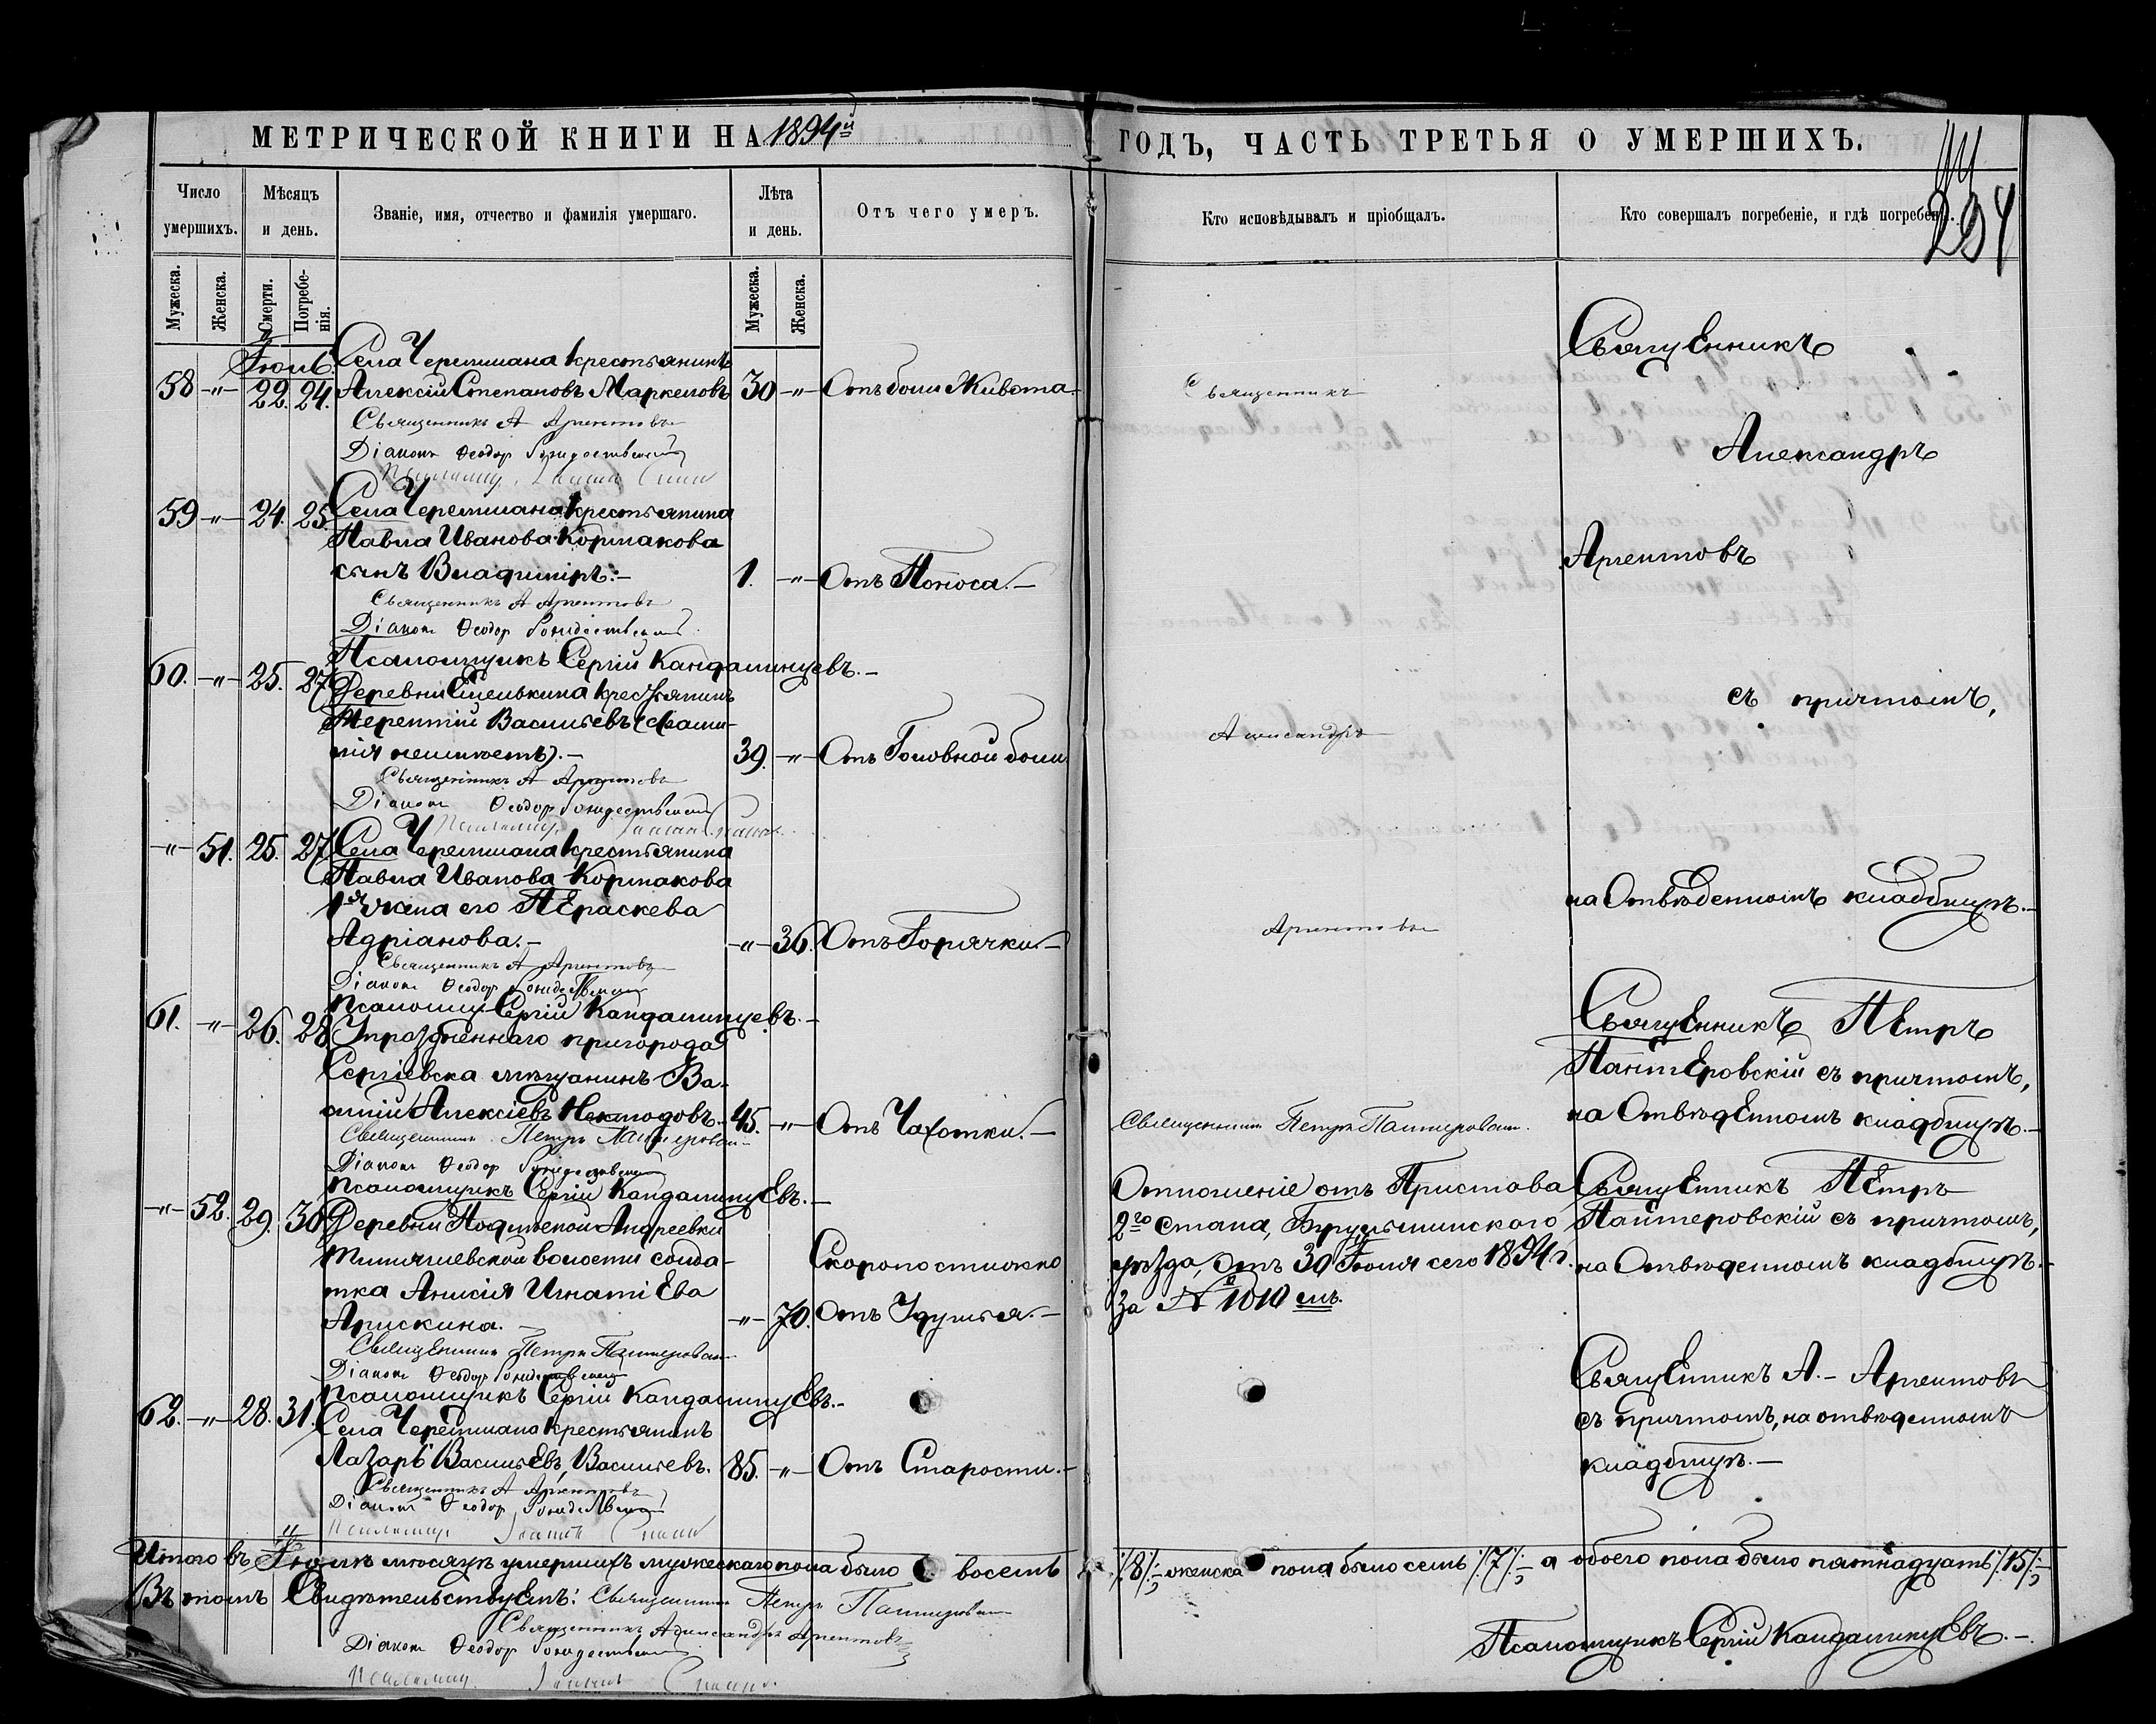 МЕТРИЧЕСКОЙ КНИГИ НА 1894й ГОДЪ, ЧАСТЬ ТРЕТЬЯ О УМЕРШИХЪ.
234
Число умершихъ.
Мѣсяцъ и день.
Званіе, имя, отчество и фамилія умершаго.
Лѣта и день.
Отъ чего умеръ.
Кто исповѣдывалъ и пріобщалъ.
Кто совершалъ погребеніе, и гдѣ погребенъ.
Мужеска.
Женска.
Смерти.
Погребе-
нія.
Мужеска.
Женска.
Іюль.
Села Черемшана крестьянинъ
58 -"- 22. 24. Алексій Степановъ Маркеловъ 30 -"- Отъ боли Живота.-
Священникъ А Аргентовъ
Діаконъ Ѳеодор Рождественскій
59 -"- 24. 25. Села Черемшана крестьянина
Павла Иванова Кормакова
сынъ Владиміръ.- 1. -"- Отъ Поноса.-
Священникъ А Аргентовъ
Діаконъ Ѳеодор Рождественскій
Псаломщикъ Сергій Кандалинцевъ.-
60. -"- 25. 27. Деревни Емелькина крестьянинъ
Терентій Васильевъ (фами-
лія неимѣетъ).- 39. -"- Отъ Головной боли
Священникъ А Аргентовъ
Діаконъ Ѳеодор Рождественскій
-"- 51. 25. 27. Села Черемшана крестьянина
Павла Иванова Кормакова
жена его ПАраскева
Адріанова.- -"- 36. Отъ Горячки.-
Священникъ А Аргентовъ
Діаконъ Ѳеодор Рождественскій
Псаломщ. Сергій Кандалинцевъ.-
61. -"- 26. 28. Упраздненнаго пригорода
Сергіевска мѣщанинъ Ва-
силій Алексіевъ 45. -"- Отъ Чахотки.-
Священникъ Петръ Пантеровскій
Діаконъ Ѳеодор Рождественскій
Псаломщикъ Сергій Кандалинцевъ.-
-"- 52. 29. 30 Деревни Подлѣсной Андреевки
волости солда-
тка Анисія Игнатіева Скоропостижно
Арискина.- -"- 70. Отъ Удушья.-
Священникъ Петръ Пантеровскій
Діаконъ Ѳеодор Рождественскій
Псаломщикъ Сергій Кандалинцевъ.-
62. -"- 28. 31. Села Черемшана крестьянинъ
Лазарь Васильевъ, Васильевъ. 85. -"- Отъ Старости.-
Священникъ А Аргентовъ
Діаконъ Ѳеодор Рождественскій
Священникъ
Александръ
Аргентовъ
Священникъ Петръ Пантеровскій.
Отношеніе отъ Пристава
2го стана, Бугульминскаго
уѣзда, отъ 30 Іюля сего 1894 г.
за № 1010 мъ.
Священникъ
Александръ
Аргентовъ
съ причтомъ,
на Отвѣденномъ кладбищѣ.-
Священникъ Петръ
Пантеровскій съ причтомъ,
на Отвѣденномъ кладбищѣ.-
Священникъ Петръ
Пантеровскій съ причтомъ,
на Отвѣденномъ кладбищѣ.-
Священникъ А.- Аргентовъ
съ причтомъ, на отвѣденномъ
кладбищѣ.-
Итого въ Іюлѣ мѣсяцѣ умершихъ мужескаго пола было восемь /8/; женска пола было семь /7/; а обоего пола было пятнадцать /15/;
Въ томъ Свидѣтельствуемъ: Священникъ Петръ Пантеровскій
Священникъ Александръ Аргентовъ
Діаконъ Ѳеодор Рождественскій
Псаломщикъ Сергій Кандалинцевъ.-